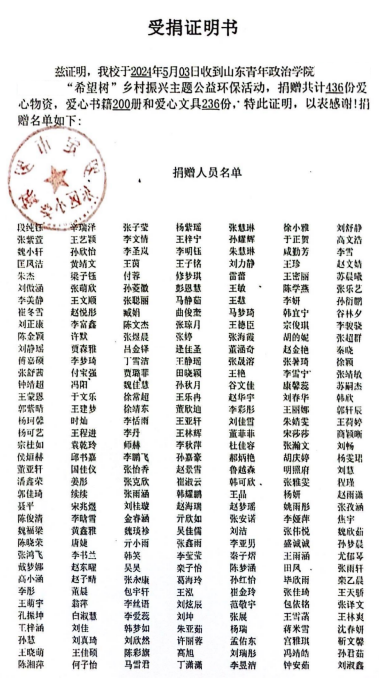 受捐证明书
兹证明，我校于2024年5月03日收到山东青年政治学院
“希望树”乡村振兴主题公益环保活动，捐赠共计436份爱
心物资，爱心书籍200册和爱心文具236份，特此证明，以表感谢!捐
赠名单如下：
捐赠人员名单
段纯钰 辛瑞泽 张子莹 杨紫瑶 张慧琳 徐小雅 刘舒静
张紫萱 王艺颖 李文情 王梓宁 孙耀辉 于正贺 高文浩
魏小轩 孙欣怡 李圣岚 李明钰 朱慧琳 咸勤芳 李雪
匡凤洁 黄靖文 王茵 王子铭 刘力静 王珍 赵文婧
朱杰 梁子钰 付蓉 修梦琪 雷蕾 王密丽 苏晨曦
刘傲涵 张萌欣 孙菱徽 彭恩慧 王敏 陈学燕 张乐艺
李美静 王文顺 张聪丽 马静茹 王慧 李妍 孙衍鹏
崔冬雪 赵悦彤 臧娟 曲俊蓥 马梦琦 韩宜宁 谷林夕
刘正康 李富鑫 陈文杰 张琼月 王德臣 宗俊琪 李骏骁
陈金颖 许默 张煜晨 张婷 张海月 胡的妮 张超群
刘静瑶 贾森雅 吕金铎 逄佳圣 董涵奇 赵金艳 秦晓
傅嘉硕 李梦琦 丁雪洁 王静瑶 张晟溶 张署琦 徐颖
张舒茜 付宝强 贾璐菲 田晓颖 王艳 李雪宁 张靖敏
钟靖超 冯阳 魏佳慧 孙秋月 谷文佳 康馨蕊 苏嗣杰
王棠恩 于文乐 徐常超 王乐冉 赵华宇 刘春华 韩欣
郭紫晴 王建梦 徐靖东 董欣迪 李彩彤 王丽娜 郭轩辰
杨珂馨 时灿 李恬雨 王亚轩 刘佳雪 朱婧雯 王荷婷
杨可艺 王程进 李丹 王林辉 董菲菲 宋莎莎 商颖晰
宗佳如 袁乾玲 师赫 李秋萍 杜佳容 张瀚文 刘畅
侯烜赫 邱书嘉 李鹏飞 孙嘉豪 郝炳艳 胡庆婷 杨雯珺
董亚轩 国佳仪 张怡香 赵景雪 鲁越森 明照府 刘慧
潘鑫荣 姜彤 张克欣 崔淑云 韩可欣 张雅雯 程瑾
郭佳琦 续续 张雨涵 韩耀鹏 王晶 杨妍 赵雨潇
聂平 宋兆煜 刘桂璇 赵海瑞 赵梦瑶 姚雨彤 张孜涵
陈俊清 李晗雪 金春涵 亓欣如 张安诺 李娅萍 焦宇
魏福梁 黄鑫雅 魏琰袗 吴佳儒 刘洁 张伟悦 魏欣茹
陈晓荣 唐婕 亓小雨 张鑫雨 李亚男 盛诚诚 孙梦晨
张鸿飞 李书兰 韩笑 李莹莹 秦子熠 王雨涵 尤郁琴
戴梦娜 赵东曜 吴昊 栾子怡 陈梦涵 田凤 张雨轩
高小涵 赵子晴 张永康 葛海玲 孙红怡 毕欣雨 栾乙晨
李彤 董晨 包宇轩 王泓 崔金玲 张佳琦 王天骄
王萌宇 翁萍 李丝语 刘炫辰 范敬宇 包依铭 张译文
孔振坤 白淑慧 李爱蕊 刘坤 张展 王雪菡 王溪苒
王梓涵 刘佳 韩梦如 朱亚茹 杨瑞 蒋米雪 沈春妍
孙慧 刘真琦 刘欣然 许丽蓉 孟佑东 宫雅琪 靳文馨
王晓萌 王佳硕 陈彩旗 高旭 刘瑞彤 冯皓婧 孙君茹
陈湘萍 何子怡 马雪君 丁潇潇 李昱洁 钟安茹 刘淑鑫